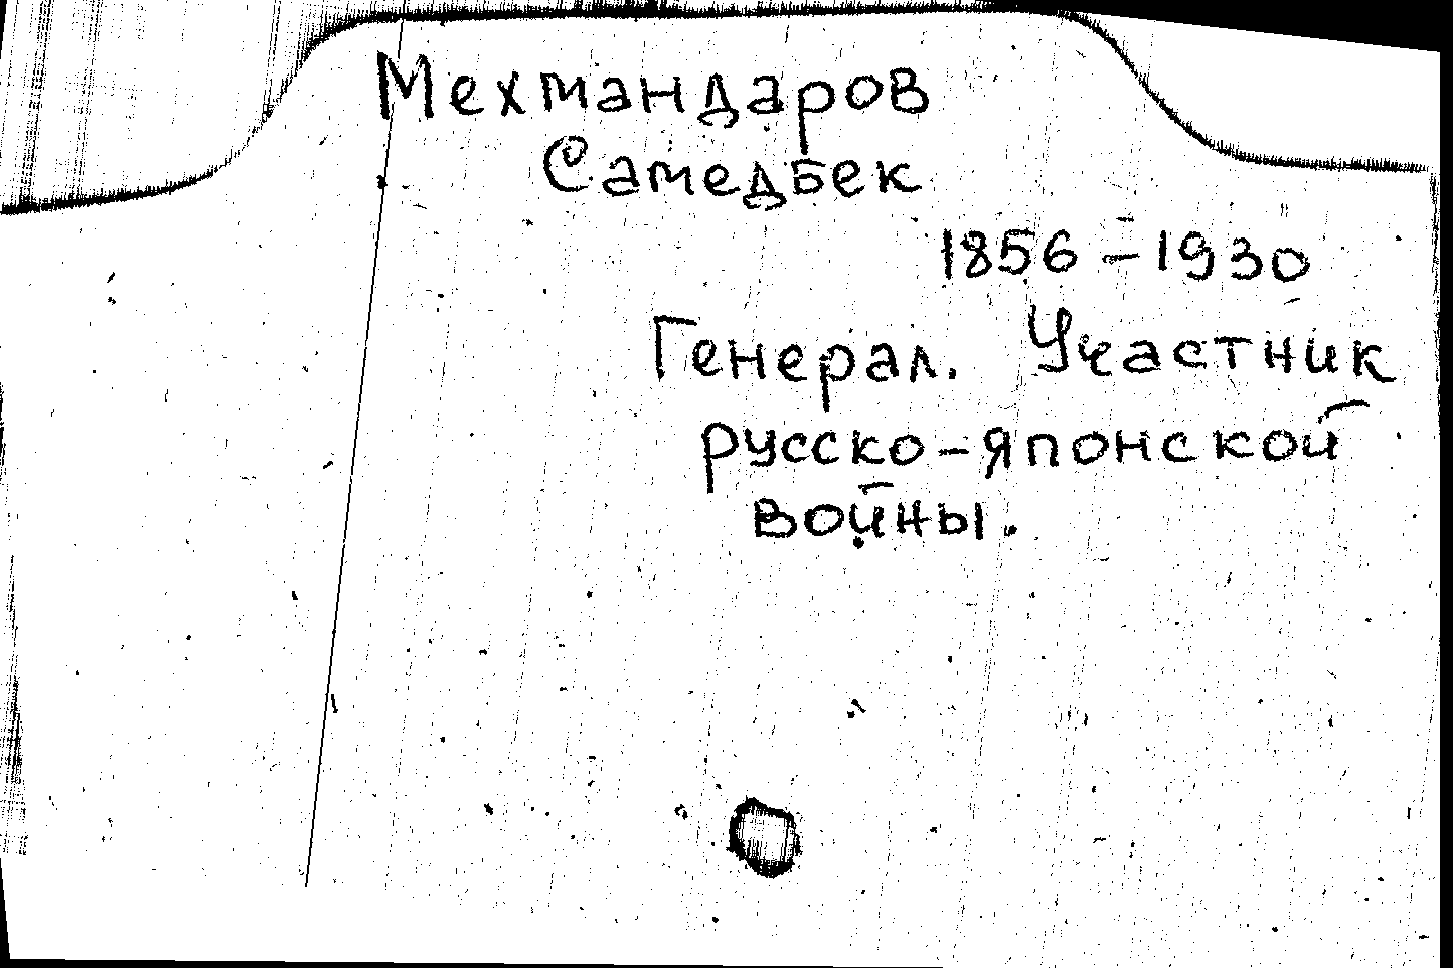 Мехмандаров
Самедбек
1856 – 1930
Генерал. Участник
русско-японской
войны.